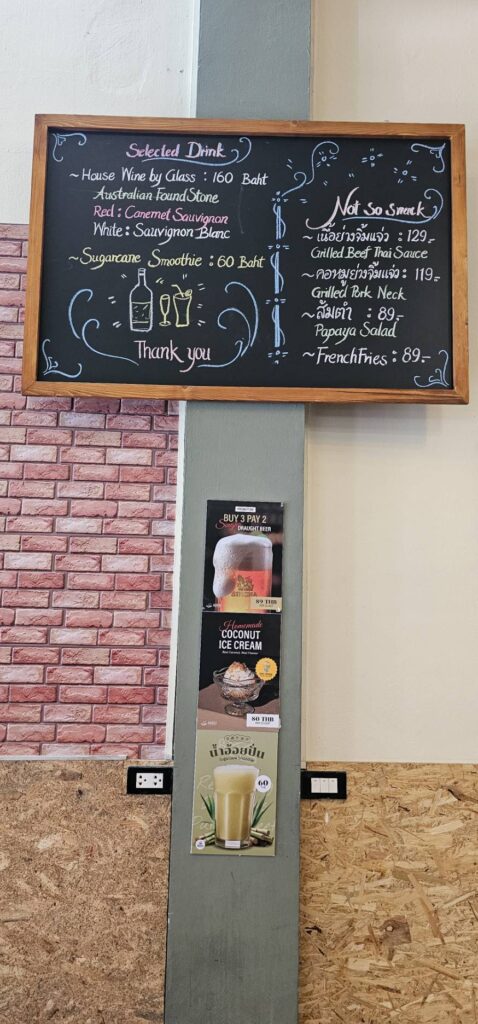 Selected Drink
~House Wine by Glass : 160 Baht
Australian Found Stone
Red : Canemet Sauvignon
White : Sauvignon Blanc
~Sugarcane Smoothie : 60 Baht
Thank you
Not so snack
~เนื้อย่างจิ้มแจ่ว : 129.-
Grilled Beef Thai Sauce
~คอหมูย่างจิ้มแจ่ว : 119.-
Grilled Pork Neck
~ส้มตำ : 89.-
Papaya Salad
~French Fries : 89.-
BUY 3 PAY 2
DRAUGHT BEER
89 THB
Homemade
COCONUT
ICE CREAM
80 THB
น้ำอ้อยปั่น
Sugarcane Smoothie
60